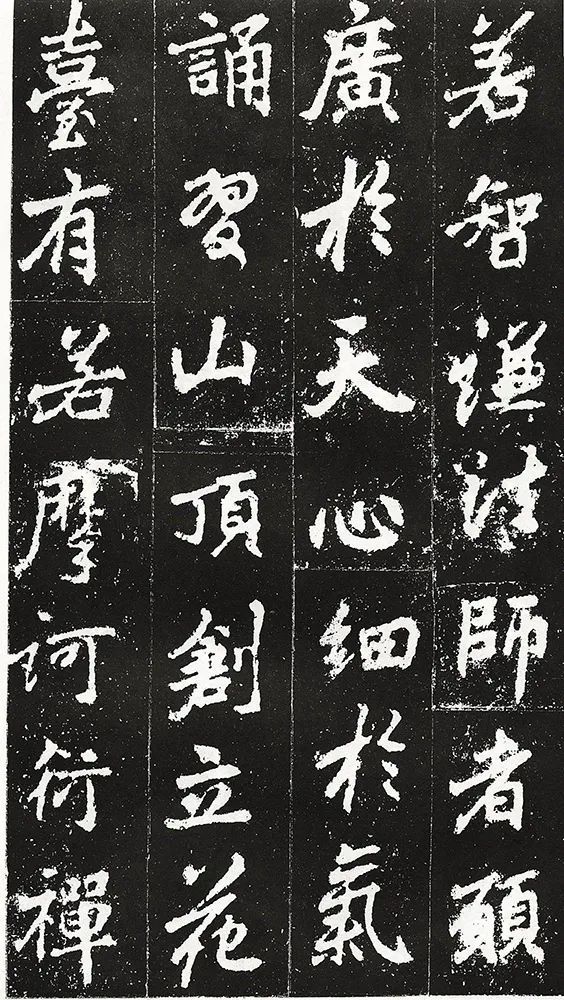 若智謙法師者願
廣於天心細於氣
誦習山頂創立花
臺有若摩訶衍禪